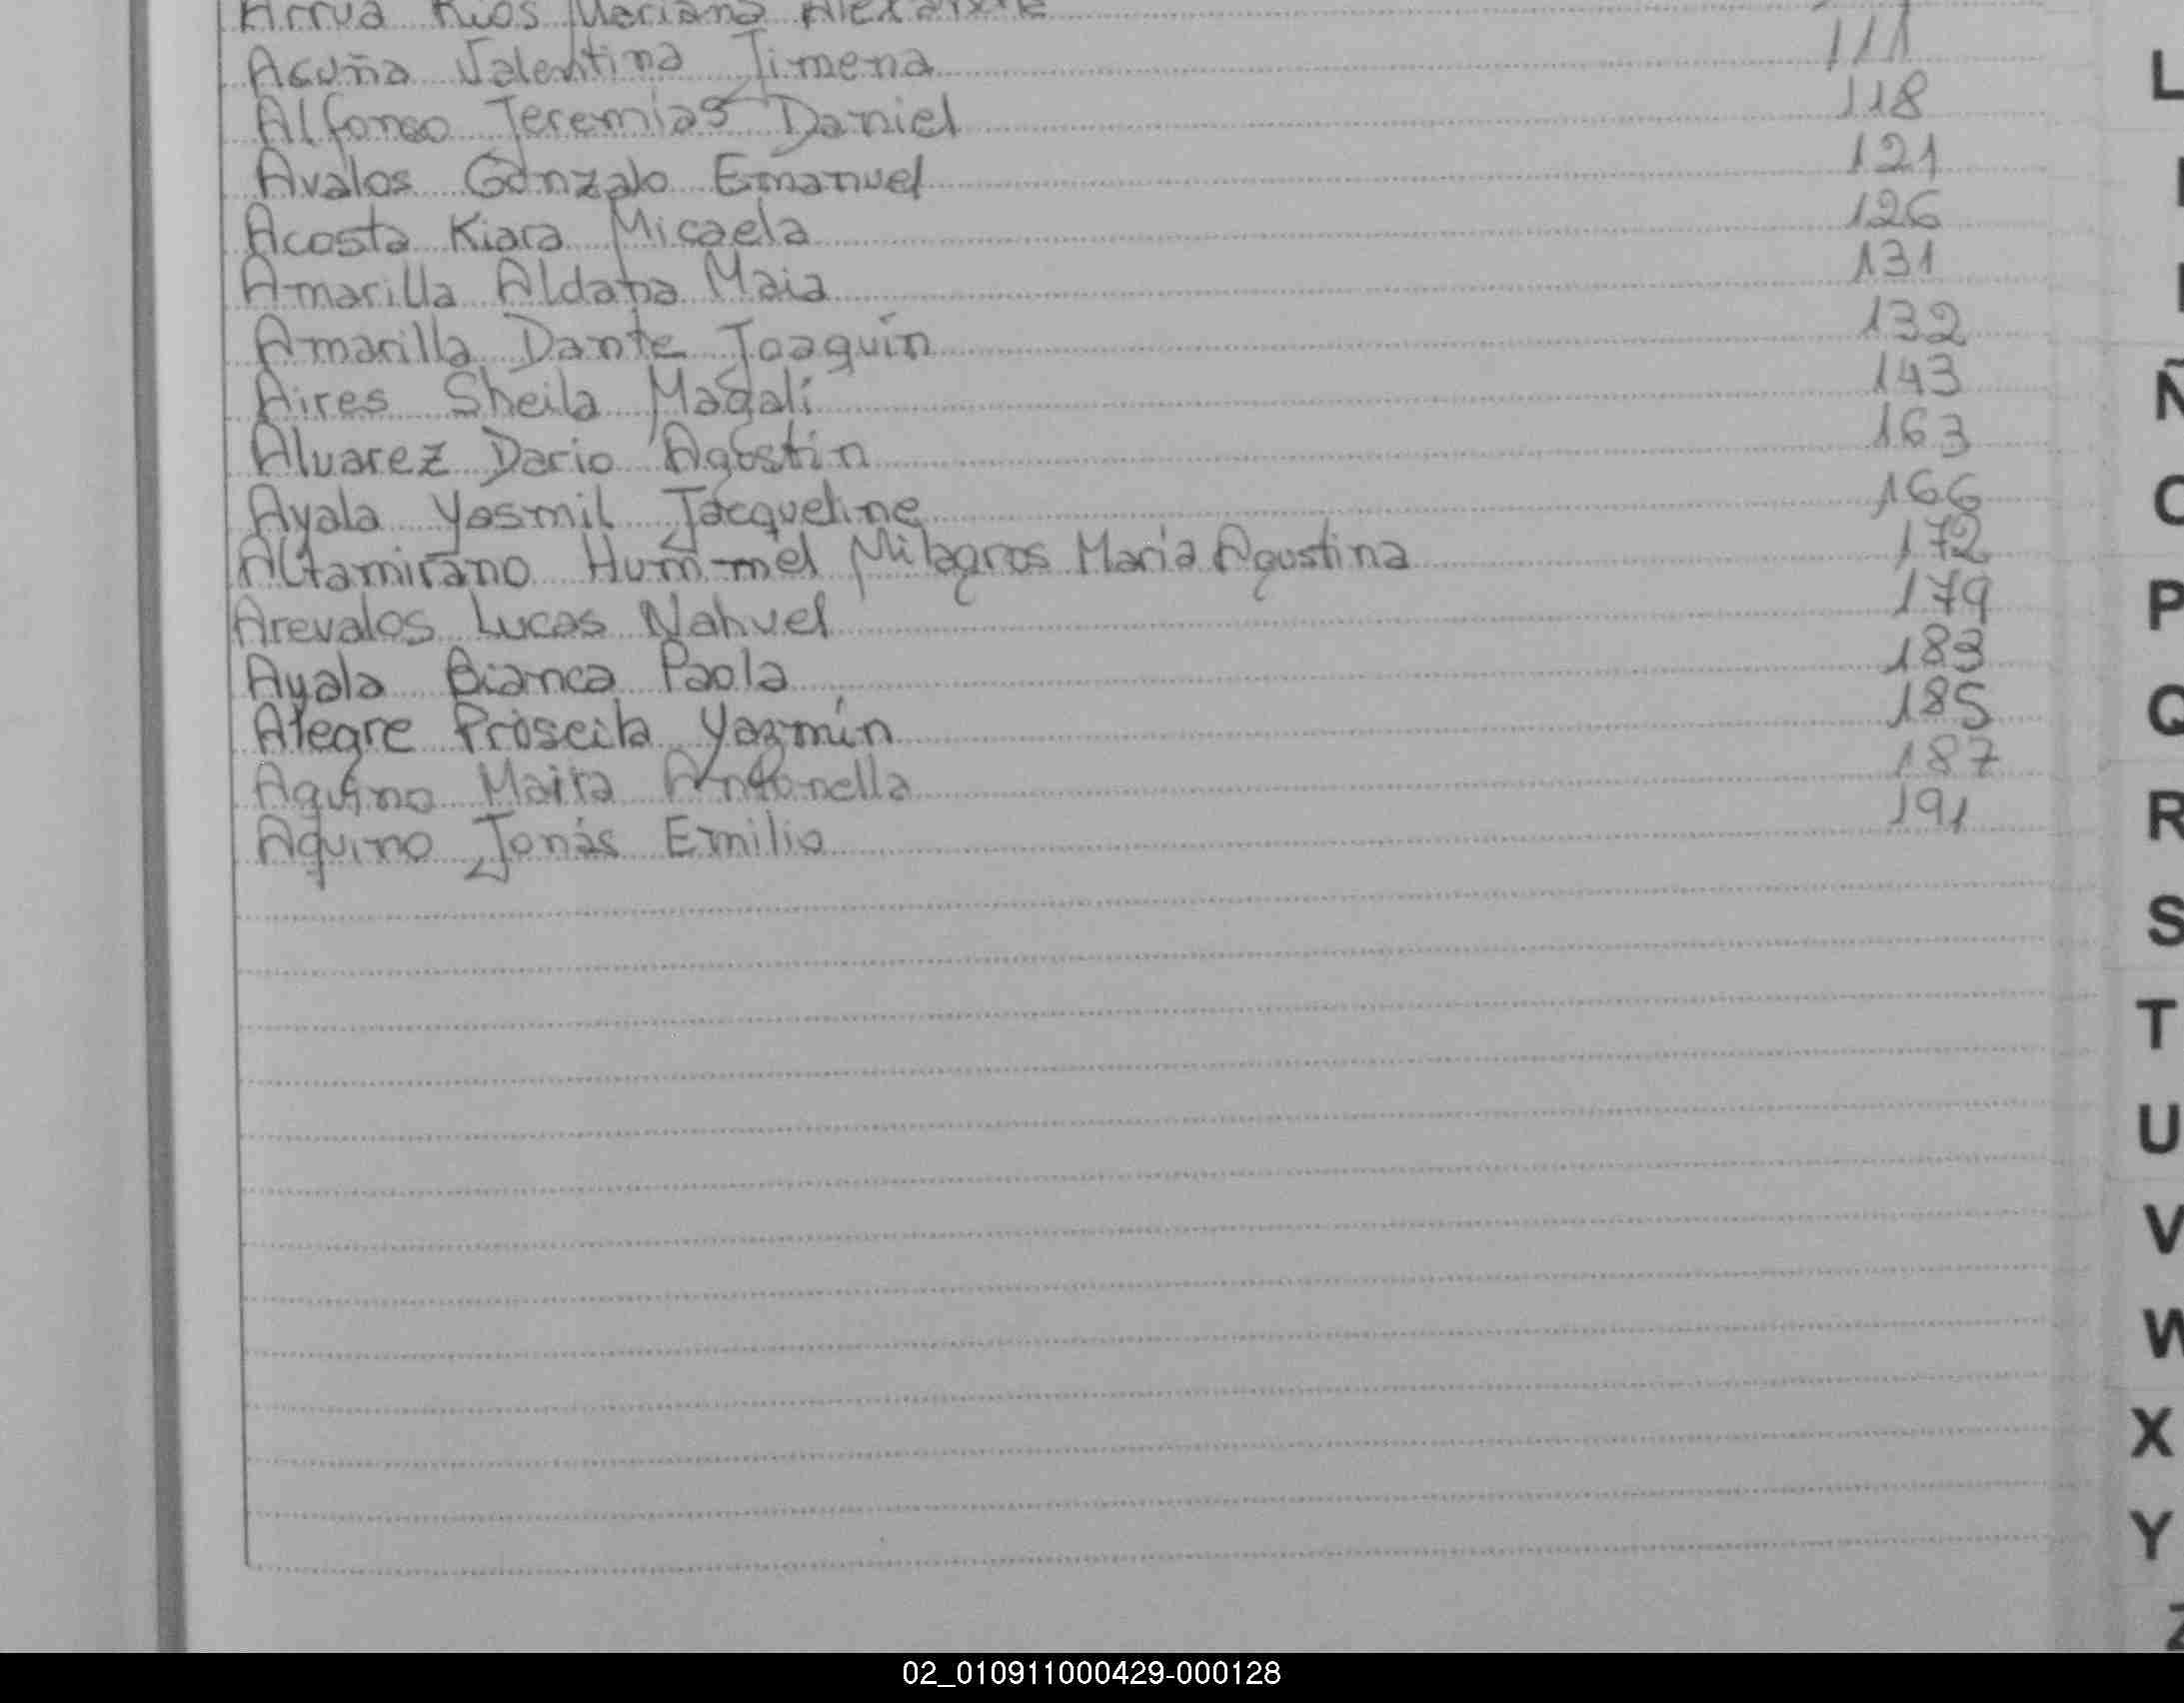 Arrua Rios Mariana
Acuña Valentina Jimena 111
Alfonso Jeremias Daniel 118
Avalos Gonzalo Emanuel 121
Acosta Kiara Micaela 126
Amarilla Aldana Maia 131
Amarilla Dante Joaquín 132
Aires Sheila Magalí 143
Alvarez Dario Agostin 163
Ayala Yasmil Jacqueline 166
Altamirano Hummel Milagros Maria Agustina 172
Arevalos Lucas Nahuel 179
Ayala Bianca Paola 183
Alegre Priscila Yazmín 185
Aquino Maira Antonella 187
Aquino Jonás Emilio 191
L
Ñ
O
P
Q
R
S
T
U
V
W
X
Y
Z
02_010911000429-000128